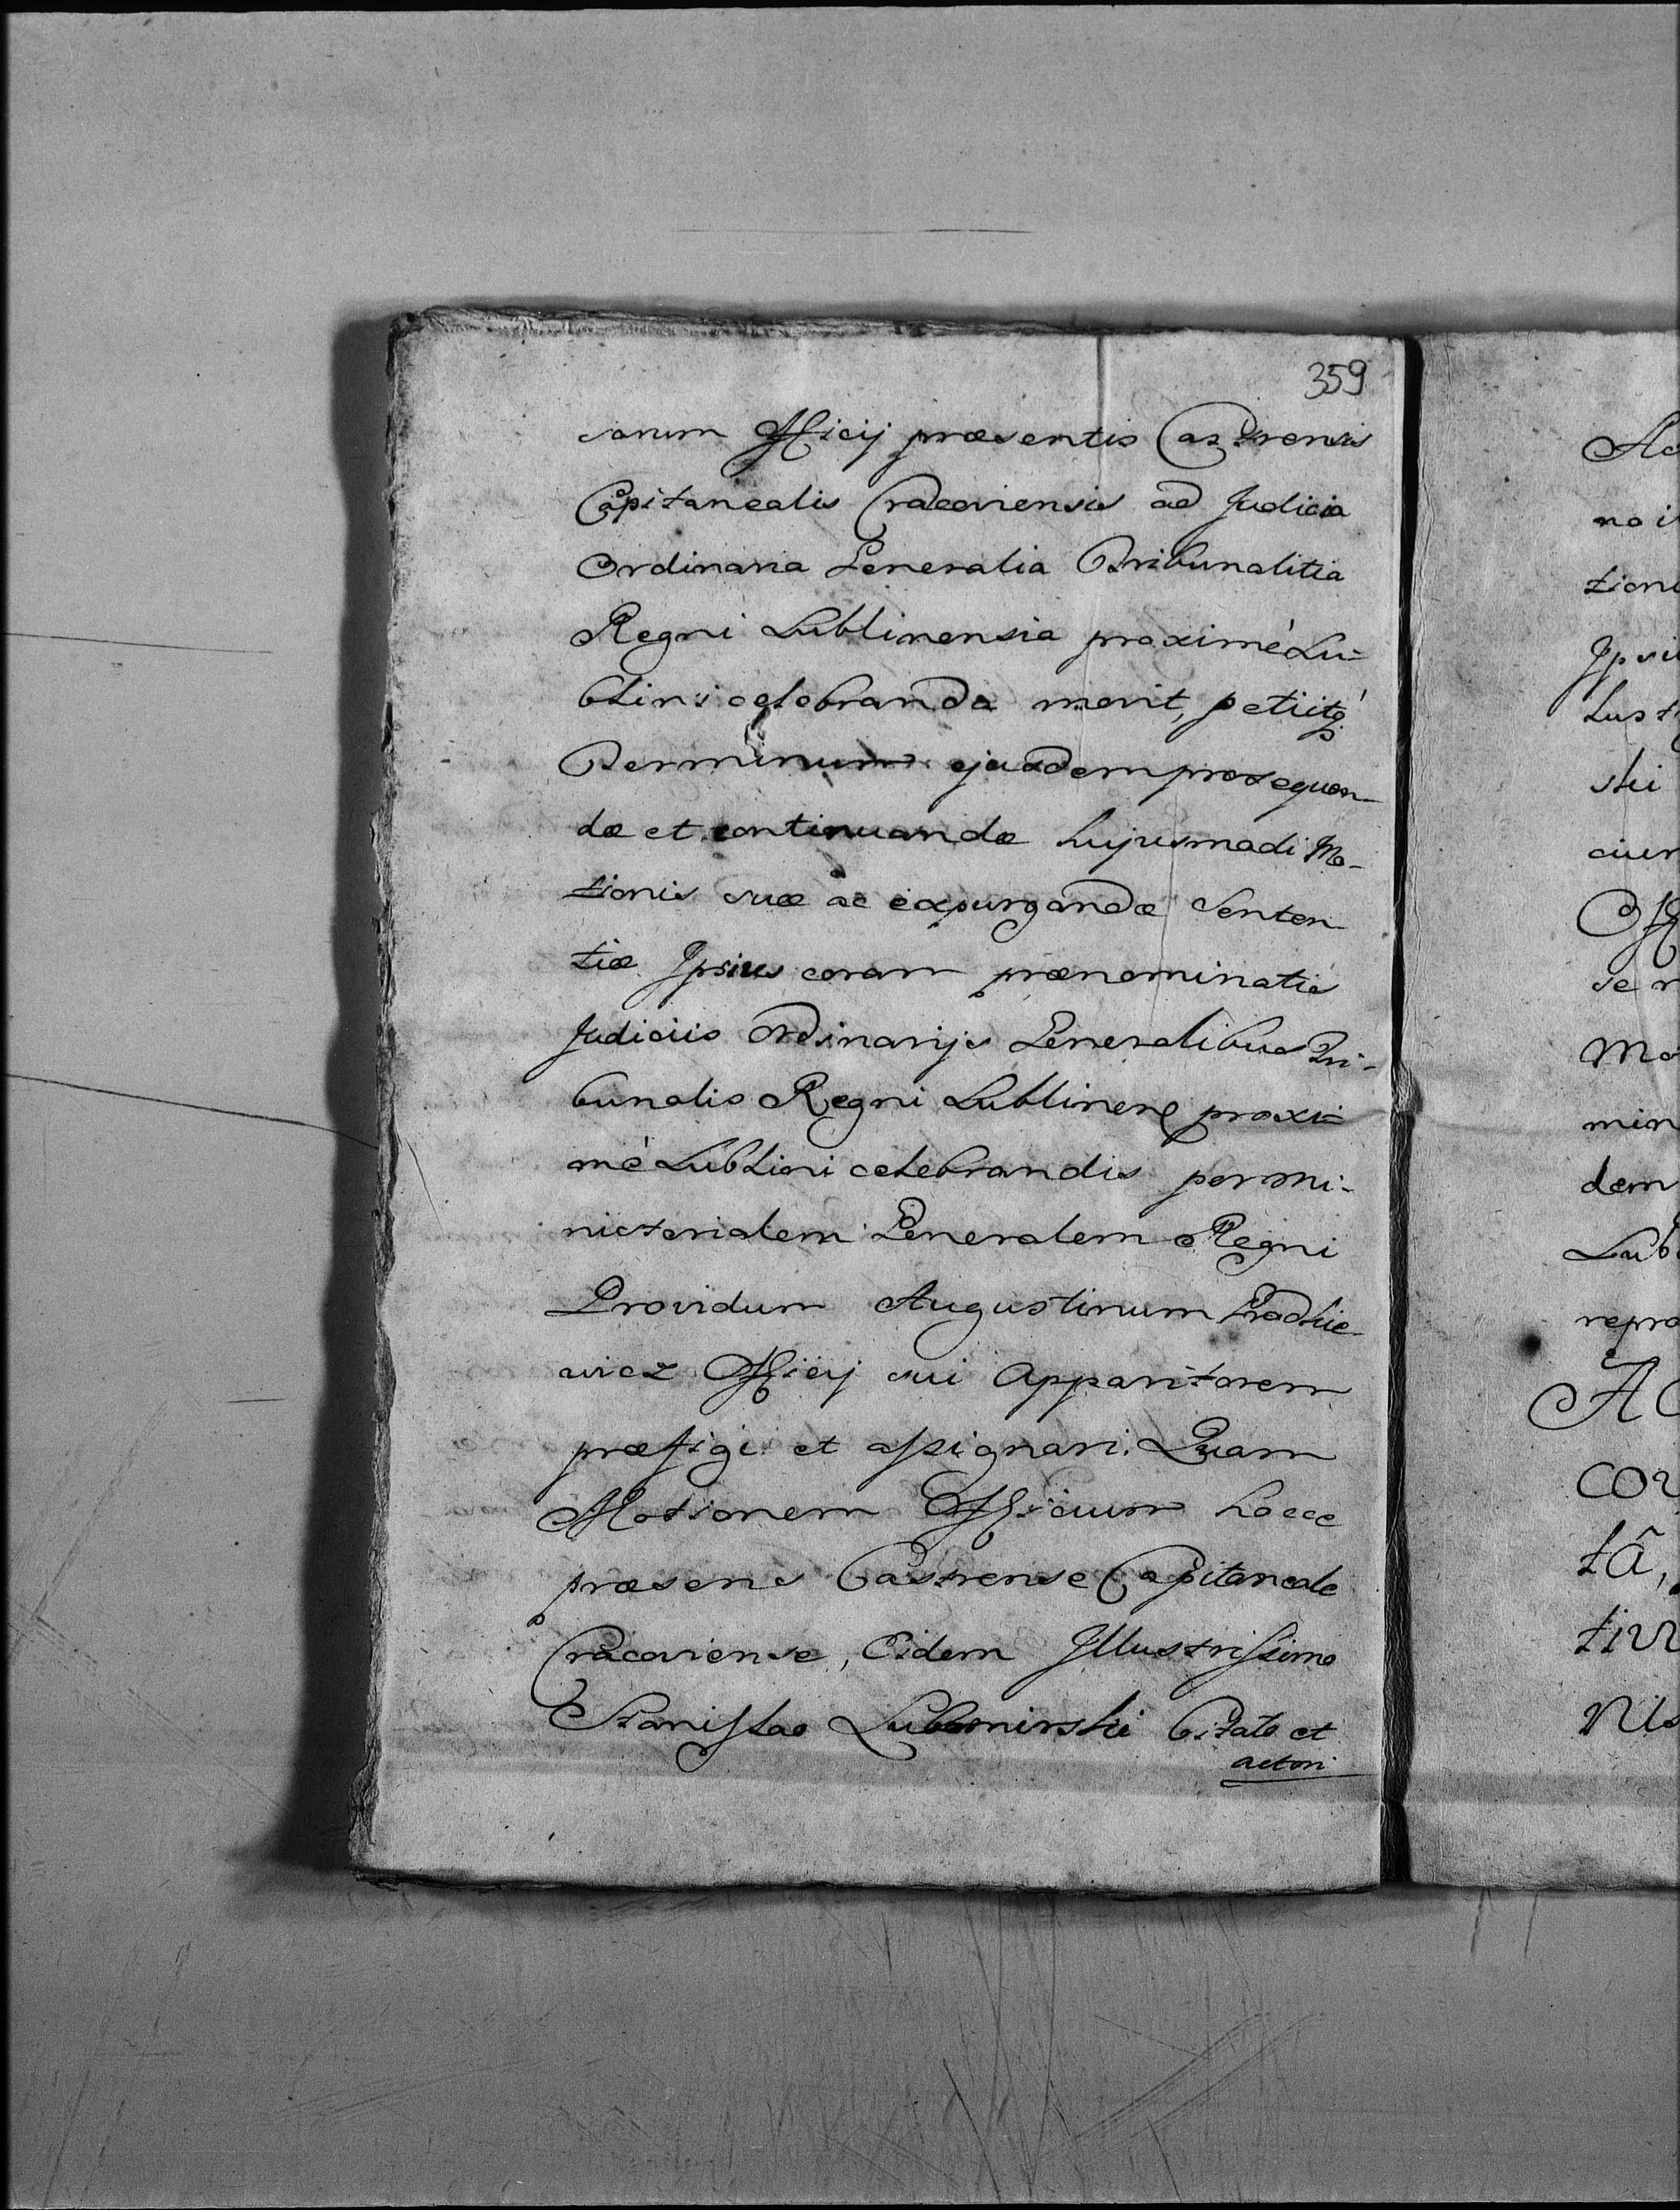 359
sarum Officij præsentis Castrensis
Capitanealis Cracoviensis ad Judicia
Ordinaria Generalia Tribunalitia
Regni Lublinensia proximè Lu=
blini celebranda movit, petiitq́
Terminum ejusdem prosequen-
dæ et continuandæ hujusmodi Mo-
tionis suæ ac expurgandæ Senten
tiæ Ipsius coram prænominatis
Judiciis Ordinarijs Generalibus Tri-
bunalis Regni Lublinen proxi=
mè Lublini celebrandis per Mi-
nisterialem Generalem Regni
Providum Augustinum
wicz Officij sui Apparitorem
præfigi et assignari. Quam
Motionem Officium hocce
præsens Castrense Capitaneale
Cracoviense, Eidem Illustrissimo
Stanislao Lubomirski Citato et
actori
Ac
no i
tion
Ipsi
Lust
ski
ciur
Off
se r
Mo
min
dem
Lub
repro
AC
cor
tâ,
tiv
Nis